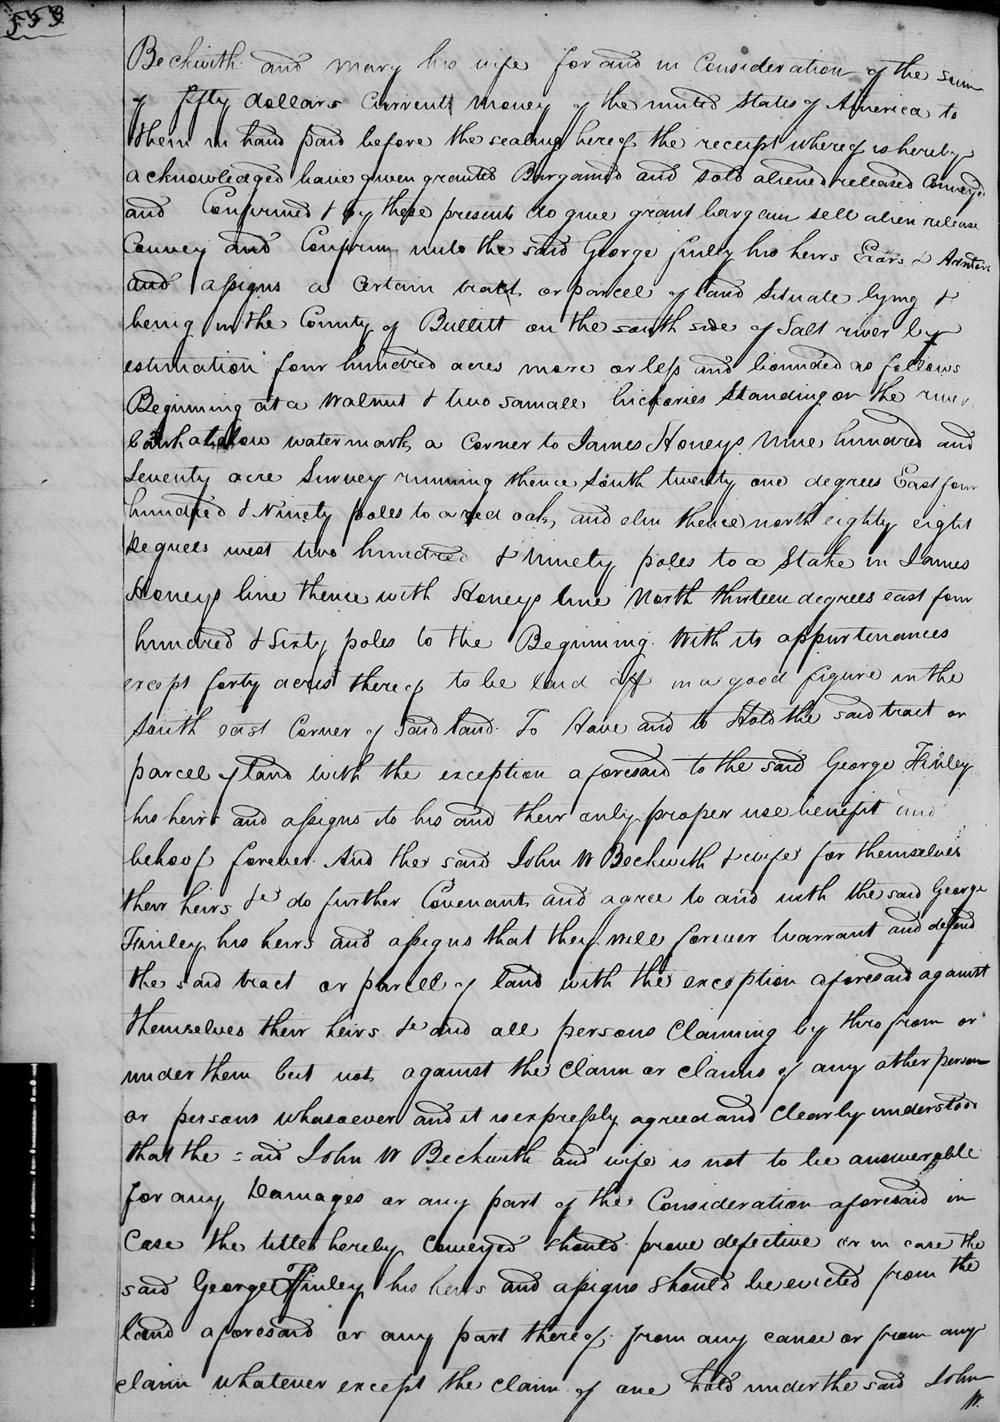 553
Beckwith and Mary his wife for and in Consideration of the sum
of fifty dollars Current money of the united States of America to
them in hand paid before the sealing hereof the receipt whereof is hereby
acknowledged have given granted Bargained and sold aliened released Conveyed
and Confirmed & by these presents do give grant bargain sell alien release
Convey and Confirm unto the said George Finley his heirs Exors & Admtors
and assigns a Certain tract or parcel of land Situate lying &
being in the County of Bullitt on the south side of Salt river by
estimation four hundred acres more or less and bounded as follows
Beginning at a Walnut & two samall hickories Standing on the river
bank at low water mark, a Corner to James Honeys Nine hundred and
Seventy acre Survey running thence South twenty one degrees East four
hundred & Ninety poles to a red oak, and elm thence north eighty eight
degrees west two hundred & Ninety poles to a Stake in James
Honeys line thence with Honeys line North thirteen degrees east four
hundred & Sixty poles to the Begining With its appurtenances
except forty acres thereof to be laid off in a good figure in the
South east Corner of Said land. To Have and to Hold the said tract or
parcel of land with the exception aforesaid to the said George Finley
his heirs and assigns to his and their only proper use benefit and
behoof forever. And the said John W Beckwith & wife for themselves
their heirs &c do further Covenant and agree to and with the said George
Finley his heirs and assigns that they will forever Warrant and defend
the said tract or parcel of land with the exception aforesaid against
themselves their heirs &c and all persons Claiming by thro from or
under them but not against the Claim or claims of any other person
or persons whatsoever and it is expressly agreed and Clearly understood
that the said John W Beckwith and wife is not to be answerable
for any Damages or any part of the Consideration aforesaid in
Case the title hereby Conveyed should prove defective or in case the
said George Finley his heirs and assigns should be evicted from the
land aforesaid or any part thereof from any cause or from any
claim whatever except the claim of one held under the said John
W.